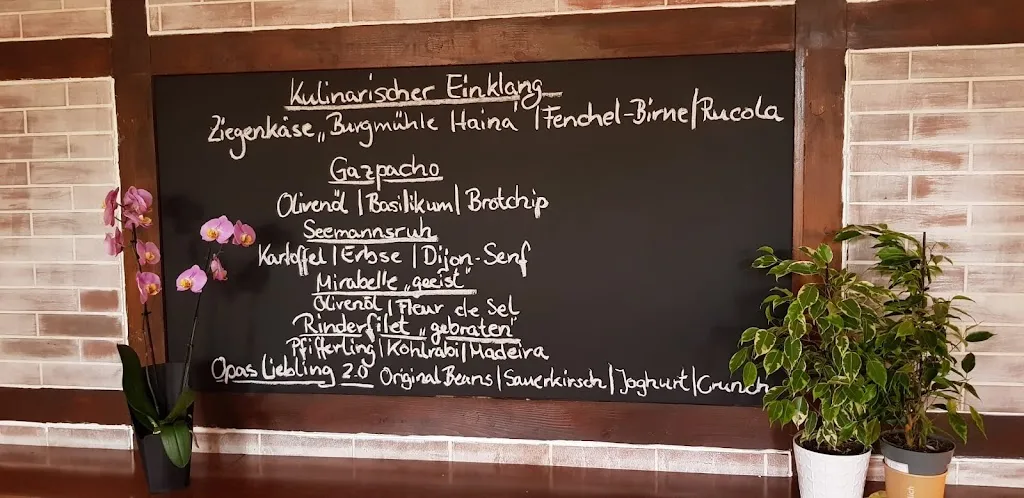 Kulinarischer Einklang
Ziegenkäse „Burgmühle Haina" | Fenchel-Birne | Rucola
Gazpacho
Olivenöl | Basilikum | Brotchip
Seemannsruh
Kartoffel | Erbse | Dijon-Senf
Mirabelle „geeist"
Olivenöl | Fleur de Sel
Rinderfilet „gebraten"
Pfifferling | Kohlrabi | Madeira
Opas Liebling 2.0 Original Beans | Sauerkirsch | Joghurt | Crunch